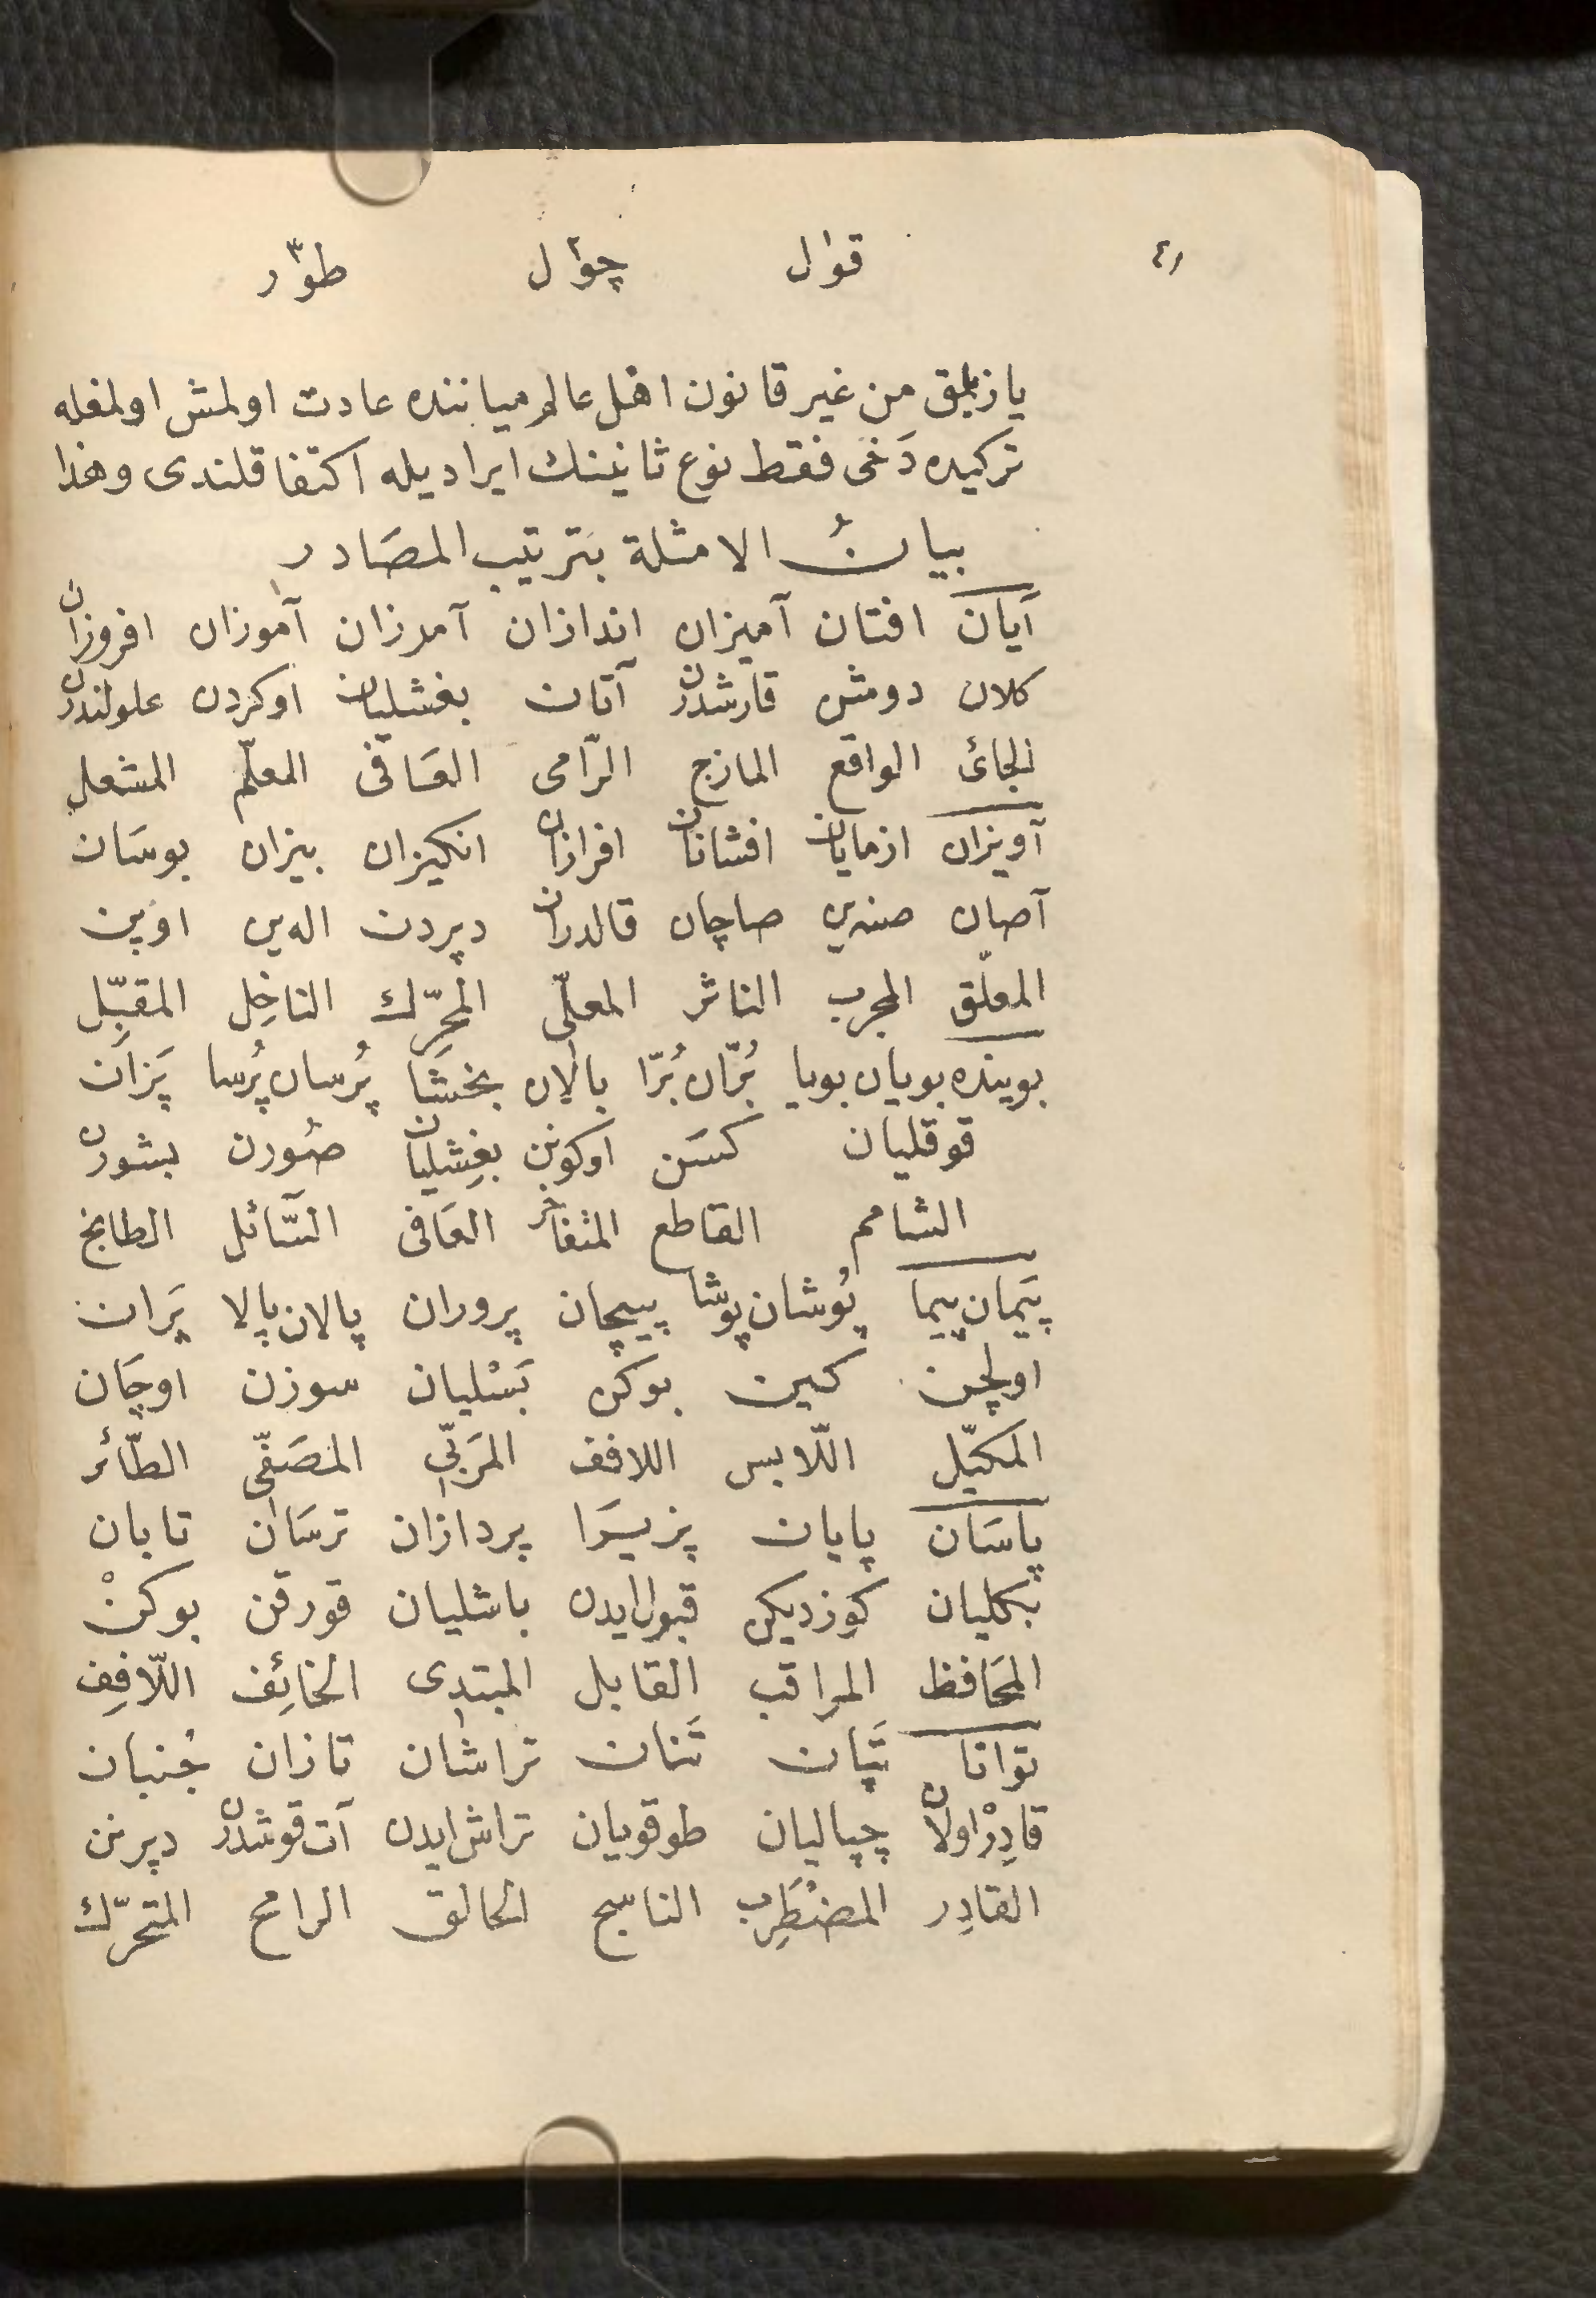 ٤١ قوال چوال طوار
يازلمق من غير قانون اهل عالم مياننده عادت اولمش اولمغله
تركيده دخى فقط نوع ثانينك ايراديله اكتفا قلندى وهذا
بيان الامثلة بترتيب المصادر
آيان افتان آميزان اندازان آمرزان آموزان افروزان
كلان دومش قارشدرن آتان بغشليان اوكردن علولندرن
الجائ الواقع المازج الرّامى العَافى المعلّم المشعل
آويزان ازمايان افشانان افرازان انكيزان بيزان بوسَان
آصان صنه‌ين صاچان قالدران دپردن اله‌ين اوپن
المعلّق المجرب الناثر المعلّى المحرّك الناخِل المقبّل
بوينده بويان بويا بُرّان بُرّا بالان بخشَا پُرسان پُرسا پَزان
قوقليان كسَن اوكونن بغِشليان صُورن بشورن
الشامم القاطع المتفاخر العَافى السّائل الطابخ
پَيمان پيما پُوشان پوشا پيچان پروران پالان پالا پَران
اولچن كين بوكن بَسْليان سوزن اوچَان
المكيّل اللّابس اللافف المرَبّى المصَفّى الطّائر
پاسَان پايان پزيرَا پردازان ترسَان تابان
بكليان كوزديكن قبول ايدن باشليان قورقن بوكنْ
المحَافظ المراقب القابل المبتدى الخائِف اللّافِف
توانا تَپان تَنان تراشان تازان جُنبان
قادِرْ اولان چپاليان طوقويان تراش ايدن آت قوشدرن دپرنن
القادِر المضْطَرِب الناسج الحالق الرامح المتحرّك